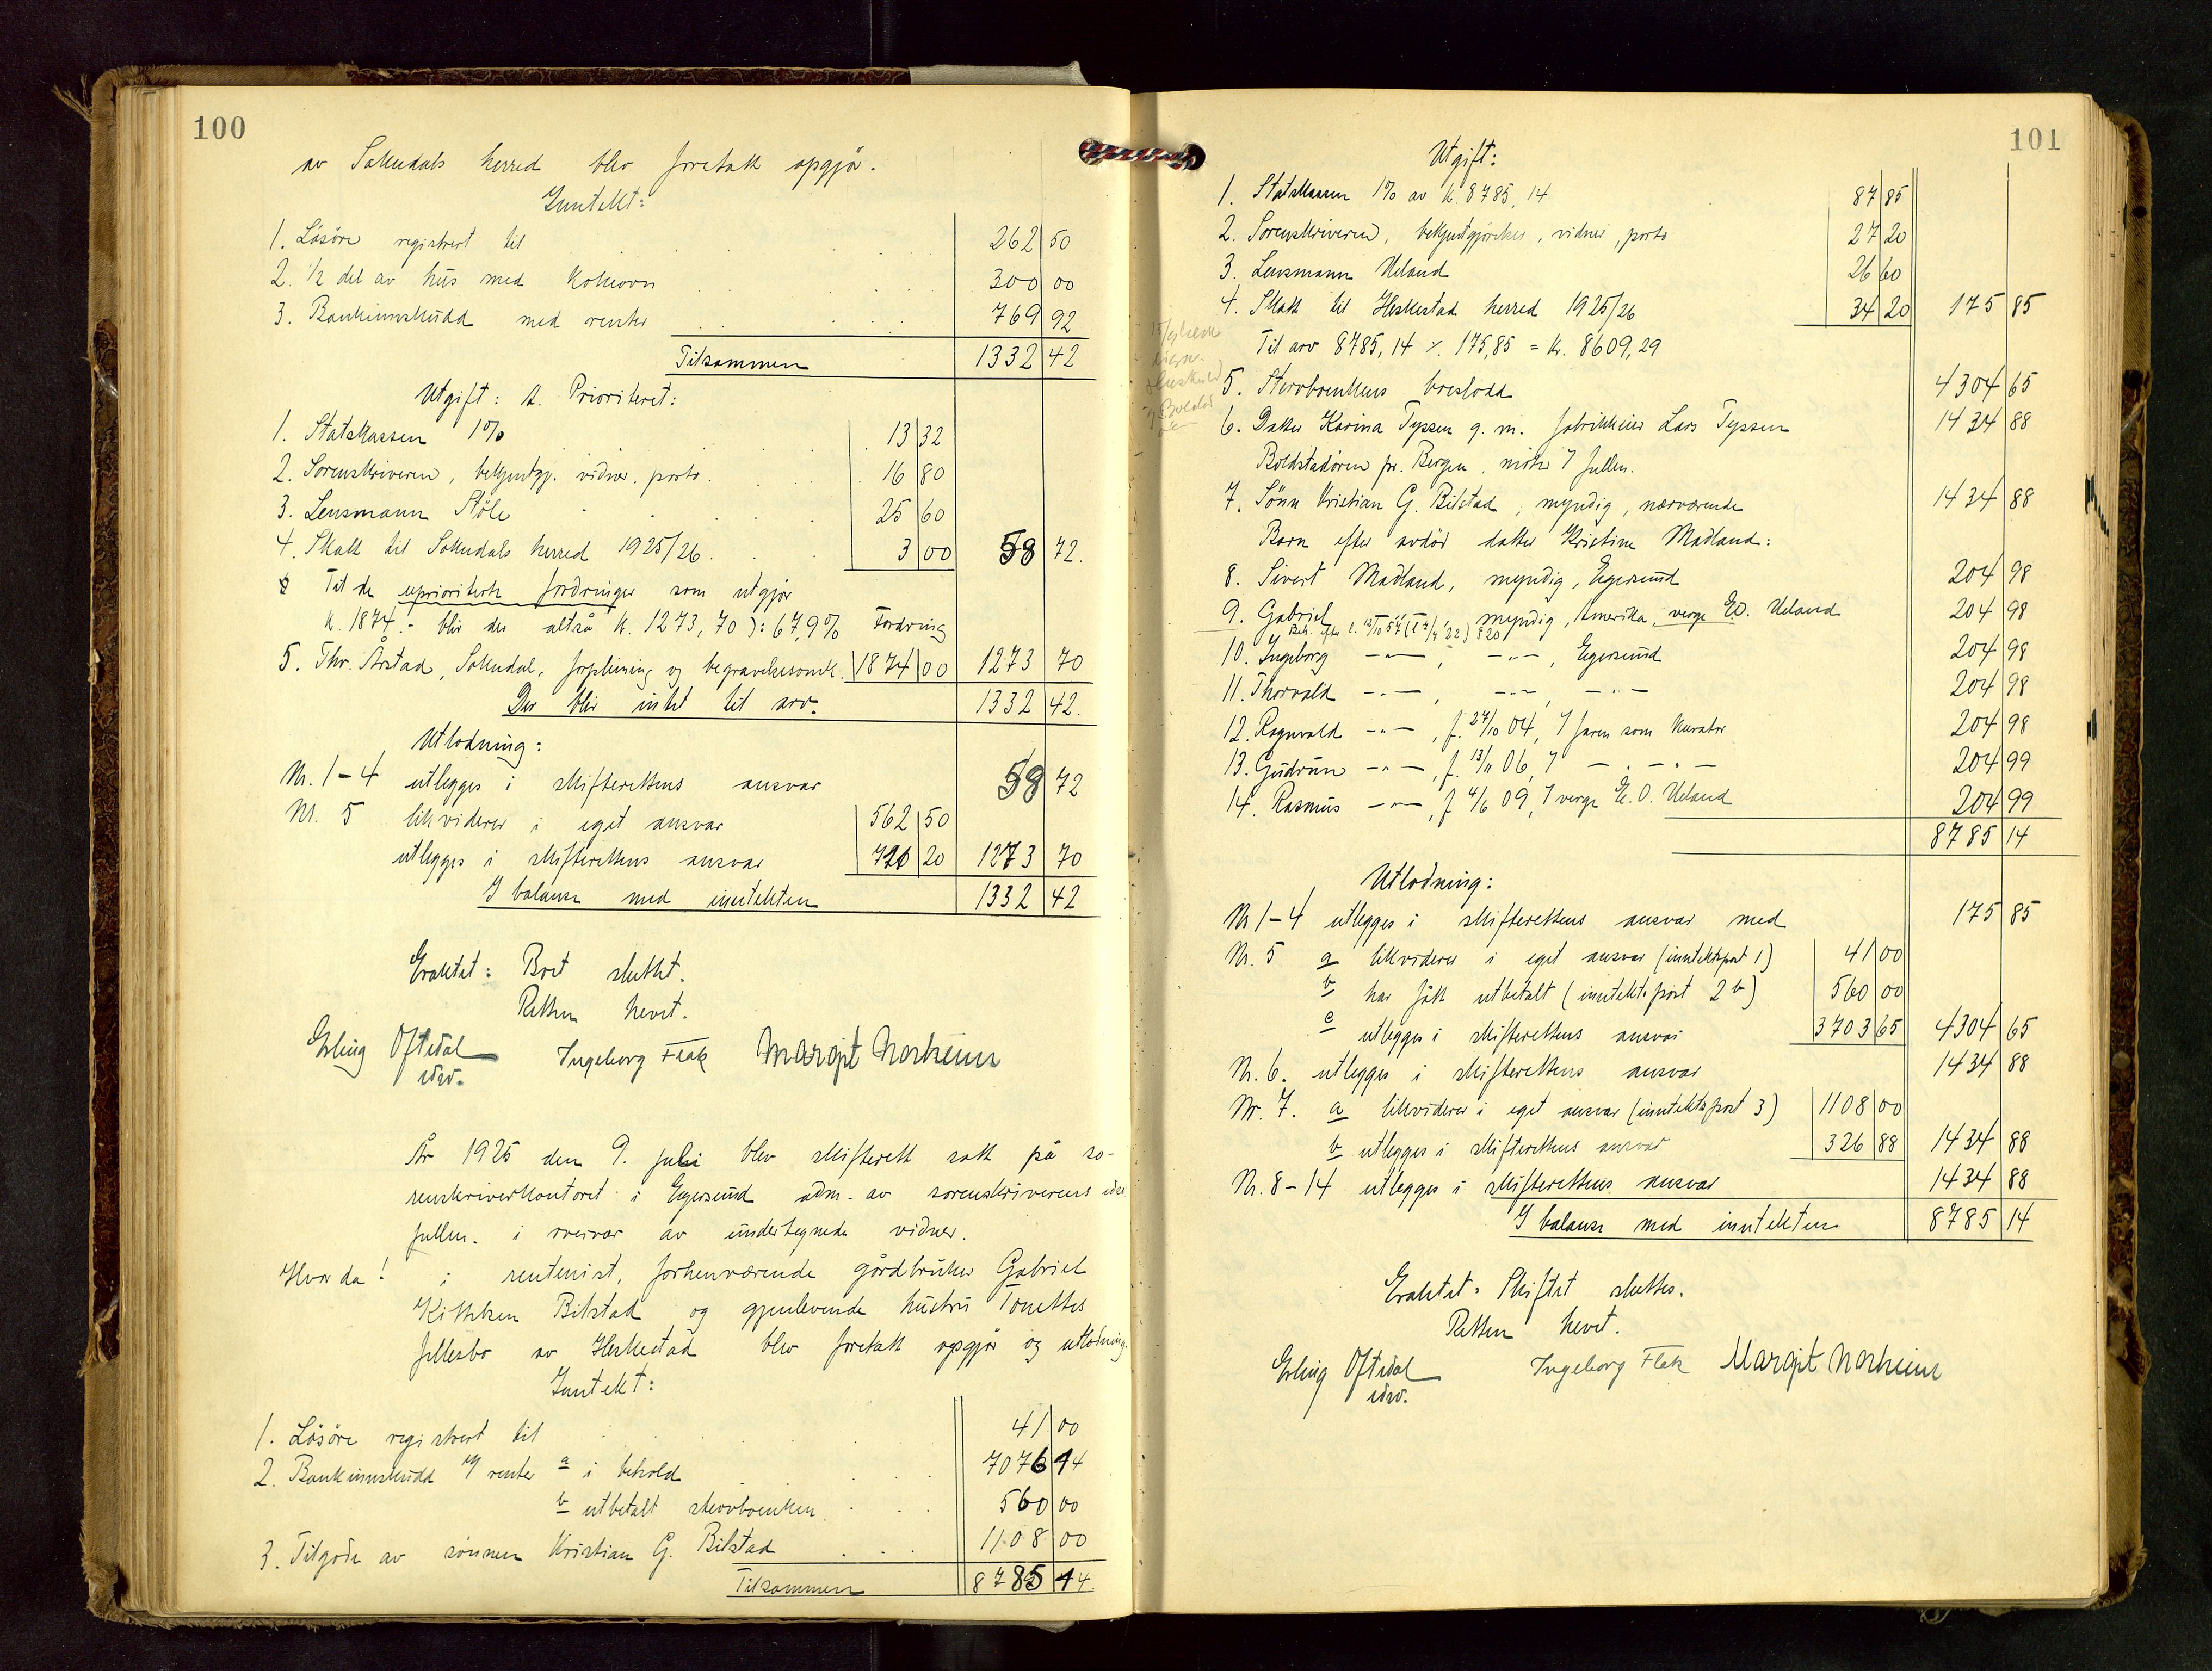 100
av Sokndals herred blev foretatt opgjör.
Inntekt:
1. Lösöre registrert til 262 50
2. 1/2 del av hus med kokeovn 300 00
3. Bankinnskudd med renter 769 92
Tilsammen 1332 42
Utgift: A. Prioritert:
1. Statskassen 1% 13 32
2. Sorenskriveren, bekjentgj. vidner. porto. 16 80
3. Lensmann Stöle 25 60
4. Skatt til Sokndals herred 1925/26. 3 00 58 72.
Til de uprioriterte fordringer som utgjör
k. 1874.- blir der altså k. 1273,70 ): 67,9% Fordring
5. Thv. Årstad, Sokndal, forpleining og begravelsesomk. 1874 00 1273 70
Der blir intet til arv. 1332 42.
Utlodning:
Nr. 1-4 utlegges i skifterettens ansvar 58 72
Nr. 5 likviderer i eget ansvar 562 50
utlegges i skifterettens ansvar 20 1273 70
I balanse med inntekten 1332 42
Eraktet: Boet sluttet.
Retten hevet.
Erling Oftedal Ingeborg Flak Margit Norheim
edsv.
År 1925 den 9. juli blev skifterett satt på so-
renskriverkontoret i Egersund adm. av sorenskriverens edsv.
fullm. i overvær av undertegnede vidner.
Hvorda! i rentenist, forhenværende gårdbruker Gabriel
Kittelsen Bilstad og gjenlevende hustru Tonettes
fellesbo av Heskestad blev foretatt opgjör og utlodning.
Inntekt:
1. Lösöre registrert til 41 00
2. Bankinnskudd m/ renter a i behold 7076 14
b utbetalt stervboenken 560 00
3. Tilgode av sönnen Kristian G. Bilstad 1108 00
Tilsammen 8785 14.
101
Utgift:
1. Statskassen 1% av k. 8785,14 87 85
2. Sorenskriveren, bekjentgjörelser, vidner, porto 27 20
3. Lensmann Ueland 26 60
4. Skatt til Heskestad herred 1925/26 34 20 175 85
Til arv 8785,14 ÷ 175,85 = kr. 8609,29
5. Stervboenkens boeslodd 4304 65
6. Datter Karina Tyssen g. m. fabrikkeier Lars Tyssen 1434 88
Boldstadören pr. Bergen, möter 7 fullm.
7. Sönn Kristian G. Bilstad, myndig, nærværende 1434 88
Barn efter avdöd datter Kristine Madland:
8. Sivert Madland, myndig, Egersund 204 98
9. Gabriel -"- myndig, Amerika, verge E.O. Ueland 204 98
10. Ingeborg -"-, -"-, Egersund 204 98
11. Thorvald -"-, -"-, -"- 204 98
12. Ragnvald -"-, f. 27/10 04, 7 faren som kurator 204 98
13. Gudrun -"-, f. 13/11 06, 7 -"- -"- 204 99
14. Rasmus -"-, f 4/6 09, 7 verge E.O. Ueland 204 99
8785 14
Utlodning:
Nr 1-4 utlegges i skifterettens ansvar med 175 85
Nr. 5 a likviderer i eget ansvar (inntektspost 1) 41 00
b har fått utbetalt (inntektspost 2b) 560 00
c utlegges i skifterettens ansvar 3703 65 4304 65
Nr. 6. utlegges i skifterettens ansvar 1434 88
Nr. 7. a likviderer i eget ansvar (inntektspost 3) 1108 00
b utlegges i skifterettens ansvar 326 88 1434 88
Nr. 8-14 utlegges i skifterettens ansvar 1434 88
I balanse med inntekten 8785 14
Eraktet: Skiftet sluttes.
Retten hevet.
Erling Oftedal Ingeborg Flak Margit Norheim
edsv.